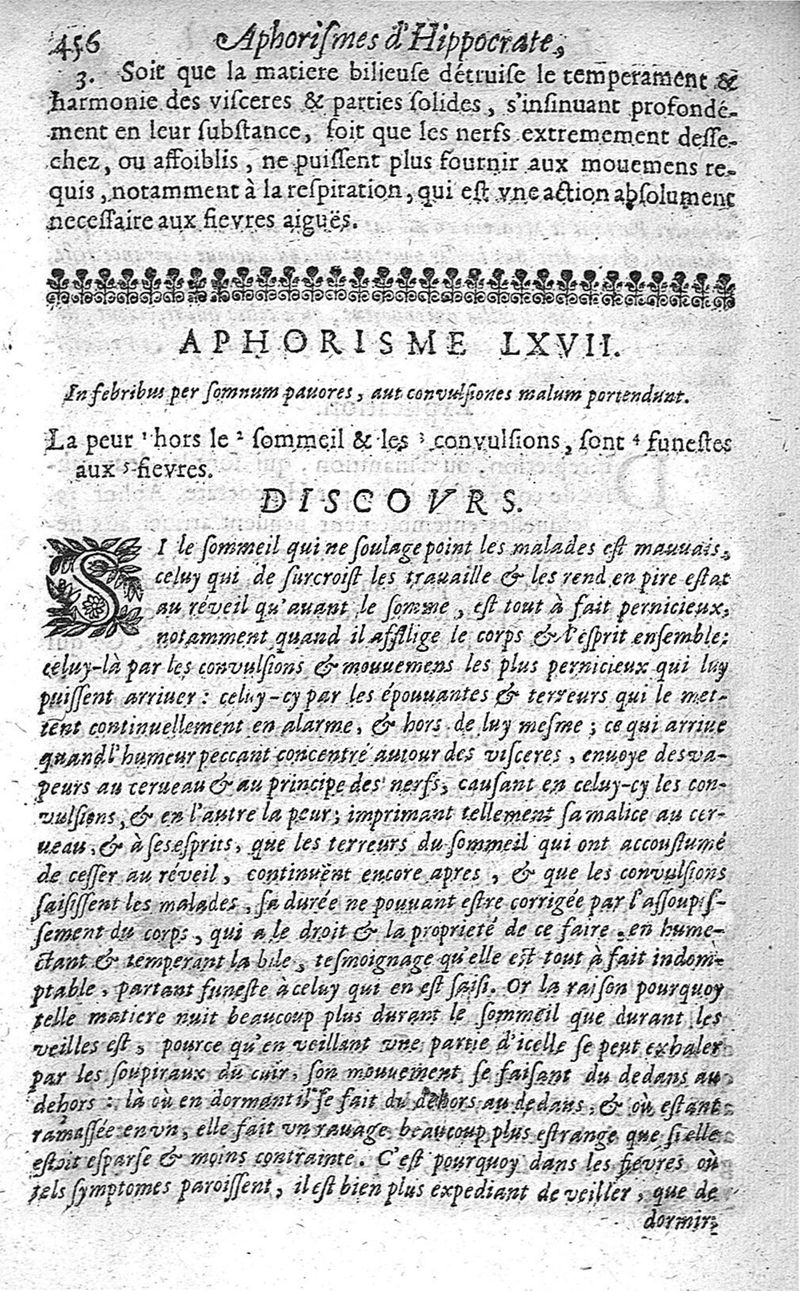 456 Aphoriſmes d'Hippocrate,
3. Soit que la matiere bilieuſe détruiſe le temperament &
harmonie des viſceres & parties ſolides, s'inſinuant profondé-
ment en leur ſubſtance, ſoit que les nerfs extremement deſſe-
chez, ou affoiblis, ne puiſſent plus fournir aux mouemens re-
quis, notamment à la reſpiration, qui eſt vne action abſolument
neceſſaire aux fievres aiguës.
APHORISME LXVII.
In febribus per ſomnum pavores, aut convulſiones malum portendunt.
La peur ¹ hors le ² ſommeil & les ³ convulſions, ſont ⁴ funeſtes
aux ⁵ fievres.
DISCOVRS.
SI le ſommeil qui ne ſoulage point les malades eſt mauvais,
celuy qui de ſurcroiſt les travaille & les rend en pire eſtat
au réveil qu'avant le ſomme, eſt tout à fait pernicieux,
notamment quand il afflige le corps & l'eſprit enſemble;
celuy-là par les convulſions & mouuemens les plus pernicieux qui luy
puiſſent arriuer: celuy-cy par les épouuantes & terreurs qui le met-
tent continuellement en alarme, & hors de luy meſme; ce qui arriue
quand l'humeur peccant concentré autour des viſceres, enuoye des va-
peurs au cerueau & au principe des nerfs, cauſant en celuy-cy les con-
vulſions, & en l'autre la peur; imprimant tellement ſa malice au cer-
ueau, & à ſes eſprits, que les terreurs du ſommeil qui ont accouſtumé
de ceſſer au réveil, continuënt encore apres, & que les convulſions
ſaiſiſſent les malades, ſa durée ne pouuant eſtre corrigée par l'aſſoupiſ-
ſement du corps, qui a le droit & la proprieté de ce faire, en hume-
ctant & temperant la bile, teſmoignage qu'elle eſt tout à fait indom-
ptable, partant funeſte à celuy qui en eſt ſaiſi. Or la raiſon pourquoy
telle matiere nuit beaucoup plus durant le ſommeil que durant les
veilles eſt, pource qu'en veillant vne partie d'icelle ſe peut exhaler
par les ſoupiraux du cuir, ſon mouuement ſe faiſant du dedans au
dehors: là où en dormant il ſe fait du dehors au dedans, & où eſtant
ramaſſée en vn, elle fait vn rauage beaucoup plus eſtrange que ſi elle
eſtoit eſparſe & moins contrainte. C'eſt pourquoy dans les fiévres où
tels ſymptomes paroiſſent, il eſt bien plus expediant de veiller, que de
dormir;